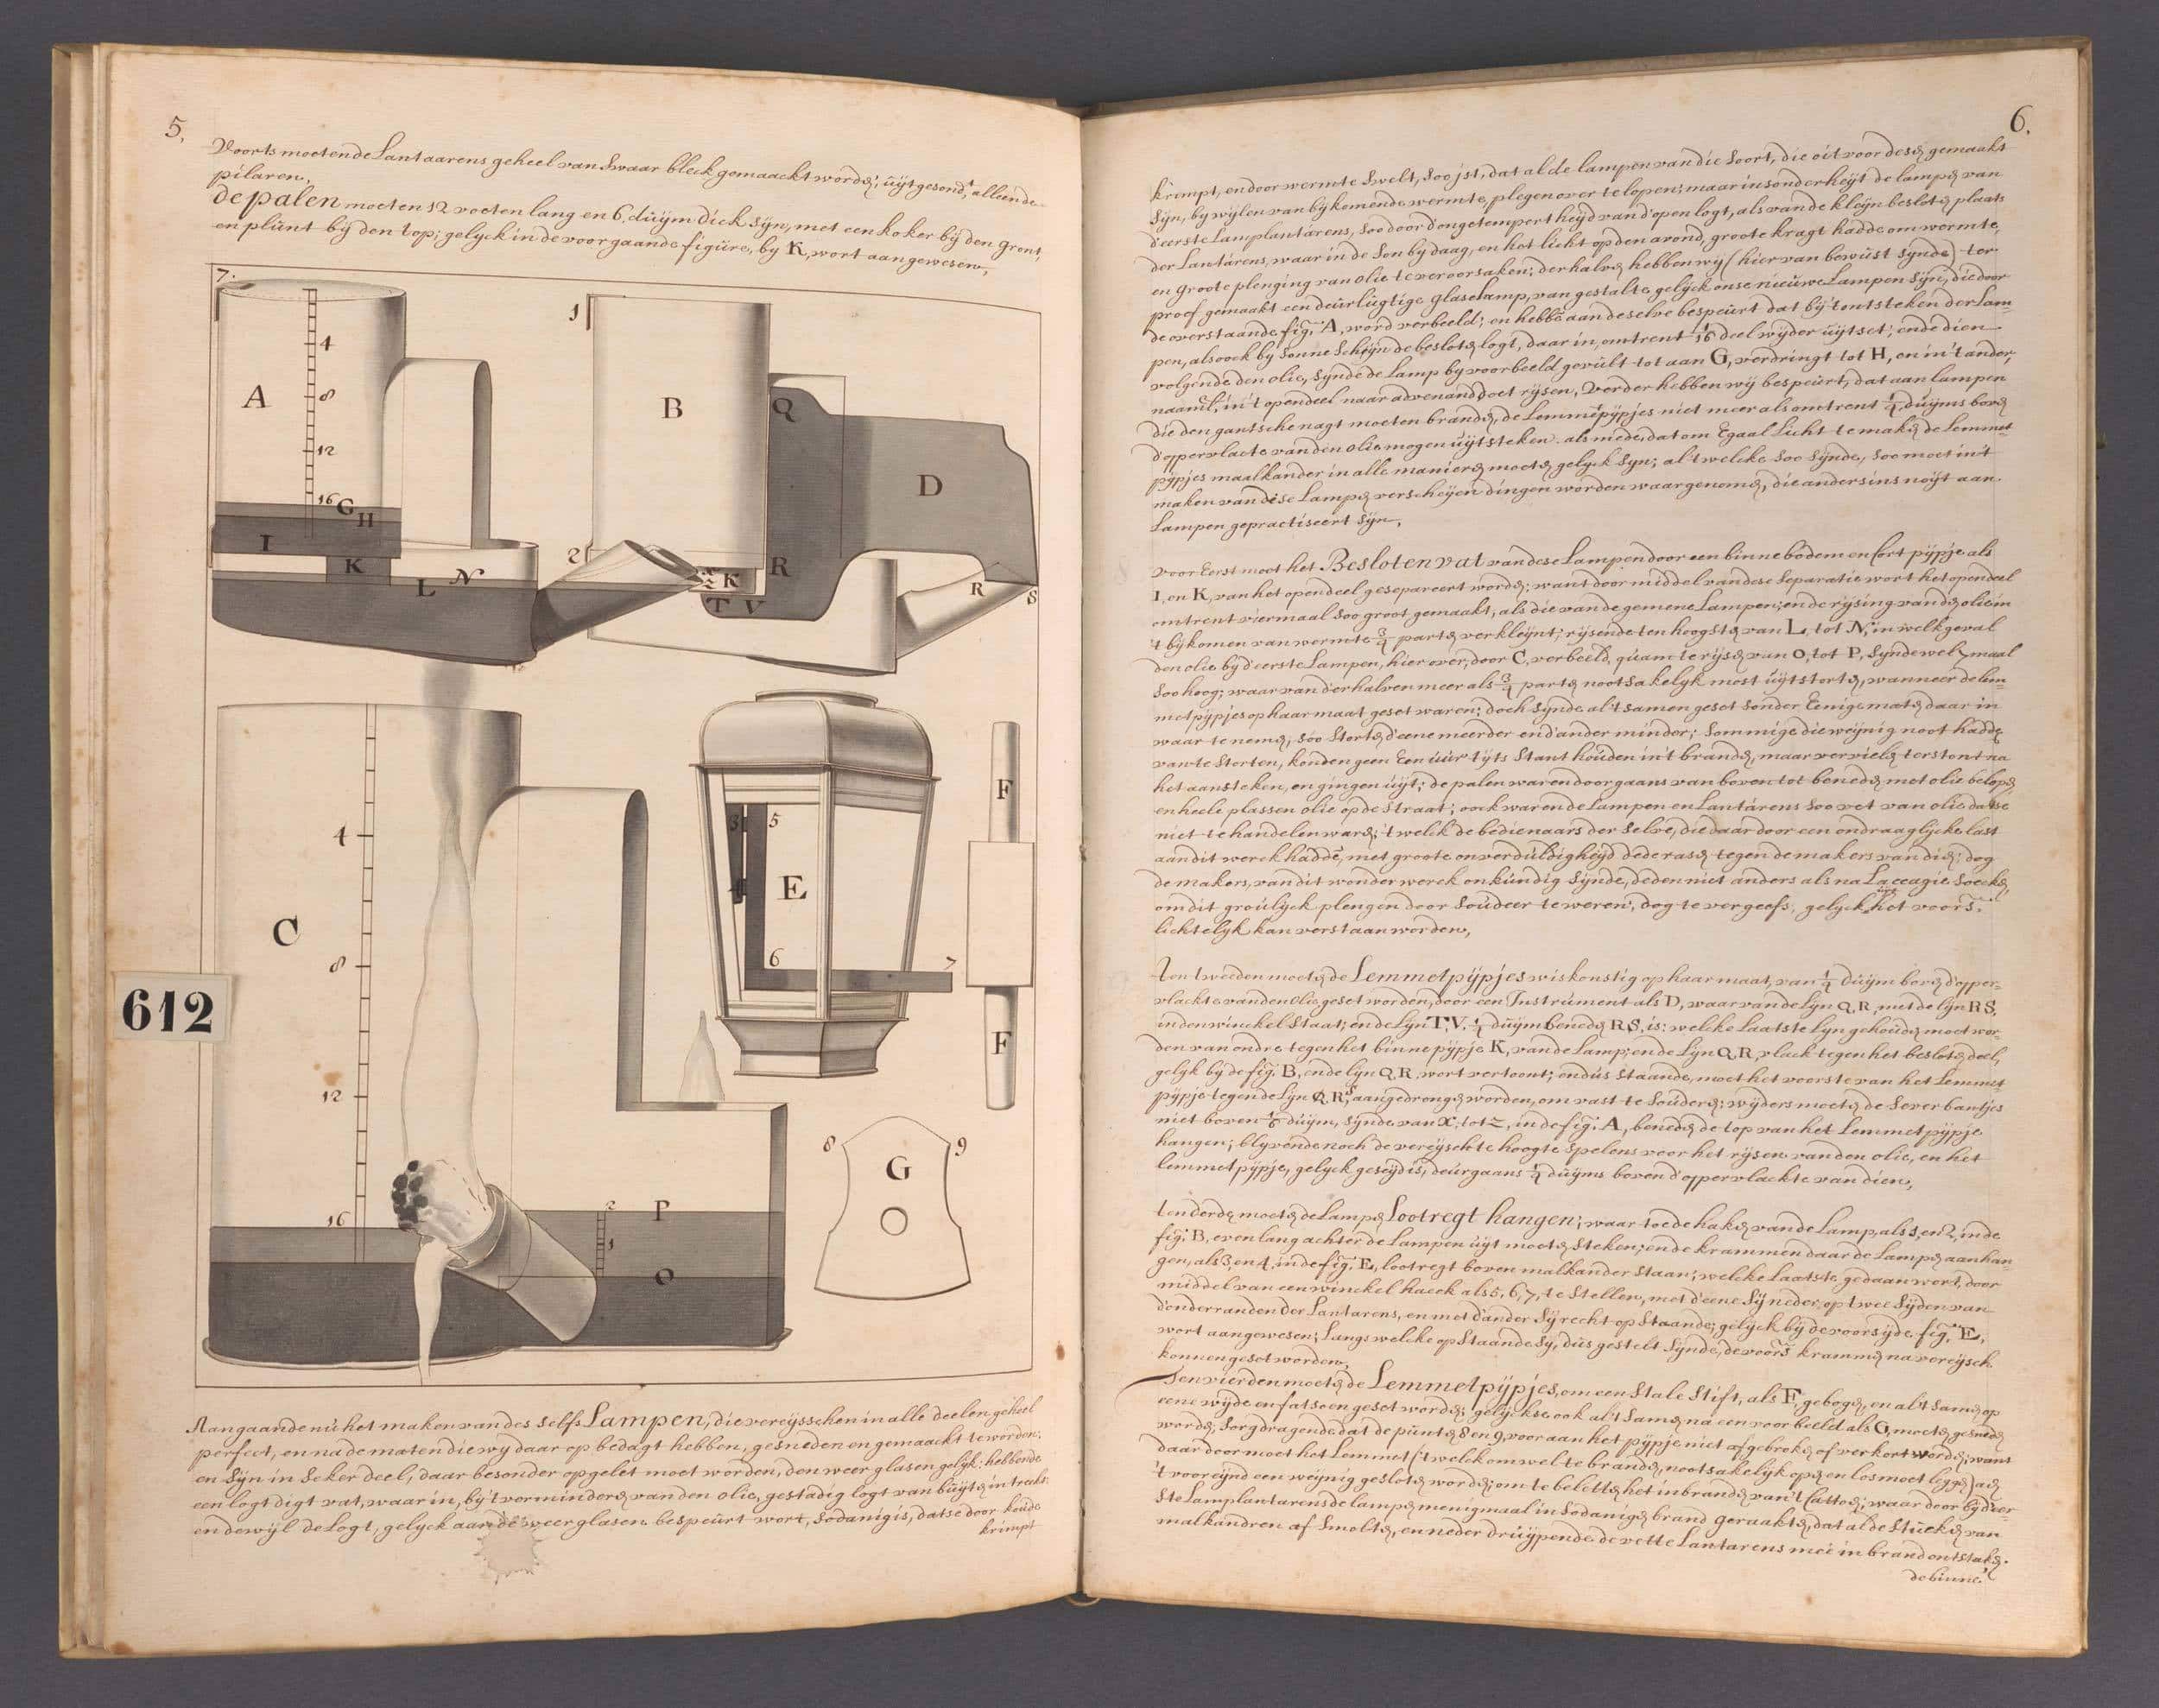 5.
Voorts moeten de Lantaarens geheel van Swaar bleck gemaackt word&; uÿtgesond.t alleen de
pilaren.
de palen moeten 12 voeten lang en 6, duÿm dick sÿn, met een koker bÿ den gront,
en plunt bÿ den top; gelyck in de voorgaande figure, by K, wort aangewesen,
7.
4
8
12
16
A
G
H
I
K
L
N
1
2
B
Q
D
K
R
T V
R
S
C
4
8
12
16
P
2
1
O
3
4
5
6
7
E
F
F
8
9
G
612
Aangaande nu het maken van des selfs Lampen, die vereÿsschen in alle deelen geheel
perfect, en na de maten die wy daar op bedagt hebben, gesneden en gemaackt te worden:
en Sÿn in Seker deel, daar besonder op gelet moet worden, den weer glasen gelyk: hebbende
een logt digt vat, waar in, bÿ 't verminder& van den olie, gestadig logt van buÿt& intreckt
en dewÿl de Logt, gelyck aan de weerglasen bespeurt wort, Sodanig is, datse door koude
krimpt
6.
krimpt, en door wermte Swelt, Soo jst, dat al de lampen van die Soort, die oit voor des& gemaakt
Sÿn, by wÿlen van bÿkomende wermte, plegen over te lopen; maar insonderheÿt de lamp& van
d'eerste Lamplantárens, Soo door d'ongetempertheÿd van d'open logt, als van de kleÿn beslot& plaats
der Lantárens, waar in de Son by daag, en het licht op den avond, groote kragt hadde om wermte,
en groote plenging van olie te veroorsaken; derhalv& hebben wÿ (hier van bewust Sÿnde) ter
proef gemaakt een deurlugtige glase Lamp, van gestalte gelÿck onse nieuwe Lampen Sÿn, die door
de overstaande fig. A, word verbeeld; en hebbē aan deselve bespeurt dat bÿ 't ontsteken der Lam=
pen, als oock by Sonne Schÿn de beslot& logt, daar in, omtrent 1/16 deel wÿder uÿtset; ende dien
volgende den olie, sÿnde de Lamp by voorbeeld gevult tot aan G, verdringt tot H, en in 't ander,
naaml. in 't open deel naar advenand doet rÿsen, Verder hebben wÿ bespeurt, dat aan lampen
die den gantsche nagt moeten brand&, de Lemmetpÿpjes niet meer als omtrent 1/4 duÿms bov&
d'oppervlacte van den olie mogen uÿtsteken. als mede, dat om Egaal Licht te mak& de Lemmet=
pÿpjes maalkander in alle manier& moet& gelÿck Sÿn; al 't welcke soo Sÿnde, Soo moet in 't
maken van dese Lamp& verscheÿen dingen worden waargenom&, die andersins noÿt aan
Lampen gepractiseert Sÿn,
voor Eerst moet het Besloten vat van dese Lampen door een binne bodem en cort pÿpje als
I, en K, van het open deel gesepareert word&; want door middel van dese Separatie wort het open deel
omtrent viermaal Soo groot gemaakt, als die van de gemene Lampen; en de rÿsing van d& olie in
't bÿkomen van wermte 3/4 part& verkleÿnt; rÿsende ten hoogst& van L, tot N, in welk geval
den olie bÿ d'eerste Lampen, hier over, door C, verbeeld, quam te rÿs& van O, tot P, Synde wel 7 maal
Soo hoog; waar van derhalven meer als 3/4 part& nootsakelÿk most uÿtstort&, wanneer de lem=
metpÿpjes op haar maat geset waren; doch Sÿnde al 't samen geset Sonder Eenige mat& daar in
waar te nem&, Soo Stort& d'eene meerder en d'ander minder; Sommige die weÿnig noot hadd&
van te Storten, konden geen Een uur tÿts Stant houden in 't brand&, maar verviel& terstont na
het aansteken, en gingen uÿt; de palen waren doorgaans van boven tot bened& met olie belop&
en heele plassen olie op de Straat; oock waren de Lampen en Lantárens Soo vet van olie datse
niet te handelen war&; 't welck de bedienaars der Selve, die daar door een ondraaglÿcke last
aan dit werck haddē, met groote onverduldigheÿd dede ras& tegen de makers van di&; dog
de makers, van dit wonderwerck onkundig Sÿnde, deden niet anders als na Laccagie Soeck&,
om dit groulÿck plengen door Soudeer te weren; dog te vergeefs, gelyck uÿt het voors.
lichtelyk kan verstaan worden,
Ten tweeden moet& de Lemmetpÿpjes wiskonstig op haar maat, van 1/4 duÿm bov& d'opper=
vlackte van den olie geset worden, door een Instrument als D, waar van de Lÿn Q,R, met de lÿn RS,
in den winckel Staat; en de Lÿn T,V, 1/4 duÿm bened& R,S, is: welcke Laatste Lyn gehoud& moet wor=
den van ondre tegen het binne pÿpje K, van de Lamp; en de Lÿn Q,R, vlack tegen het beslot& deel,
gelÿk bÿ de fig. B, en de lÿn Q,R, wort vertoont; en dus Staande, moet het voorste van het Lemmet
pÿpje tegen de Lÿn Q,R,S, aangedrong& worden, om vast te Souder&; wÿders moet& de Sever bantjes
niet boven 1/6 duÿm, Sÿnde van X, tot Z, in de fig. A, bened& de top van het Lemmet pÿpje
hangen; blÿvende noch de vereÿschte hoogte Spelens voor het rÿsen van den olie, en het
lemmetpÿpje, gelyck geseÿd is, deurgaans 1/4 duÿms boven d'oppervlackte van dien,
ten derd& moet& de Lamp& Lootregt hangen; waar toe de hak& van de Lamp, als 1, en 2, in de
fig. B, even lang achter de Lampen uÿt moet& Steken; en de krammen daar de Lamp& aan han=
gen, als 3, en 4, in de fig. E, lootregt boven malkander Staan; welcke Laatste gedaan wort, door
middel van een winckel haeck als 5, 6, 7, te Stellen, met d'eene Sÿ neder, op twee Sÿden van
d'onder randen der Lantarens, en met d'ander Sÿ recht op Staande; gelyck bÿ de voorsÿde, fig. E,
wort aangewesen; Langs welcke op Staande Sÿ, dus gestelt Sÿnde, de voors. kramm& na vereÿsch
konnen geset worden,
Ten vierden moet& de Lemmetpÿpjes, om een Stale Stift, als F, geboge, en al 't sam& op
eene wÿde en fatsoen geset word&; gelÿck se ook al 't Sam& na een voorbeeld als G, moet& gesned&
word&; Sorgdragende dat de punt& 8 en 9, voor aan het pÿpje niet afgebrok& of verkort word&; want
daar door moet het Lemmet ('t welck om wel te brand&, nootsakelÿk op& en los moet legg&) aan
't vooreÿnd een weÿnig geslot& word&; om te belett& het inbrand& van 't Catto&; waar door bÿ d'eer=
ste Lamplantarens de lamp& menigmaal in Sodanig& brand geraakt&, dat al de Stuck& van
malkandren af Smolt&, en neder druÿpende de vette Lantarens meê in brand ontstak&.
de binne